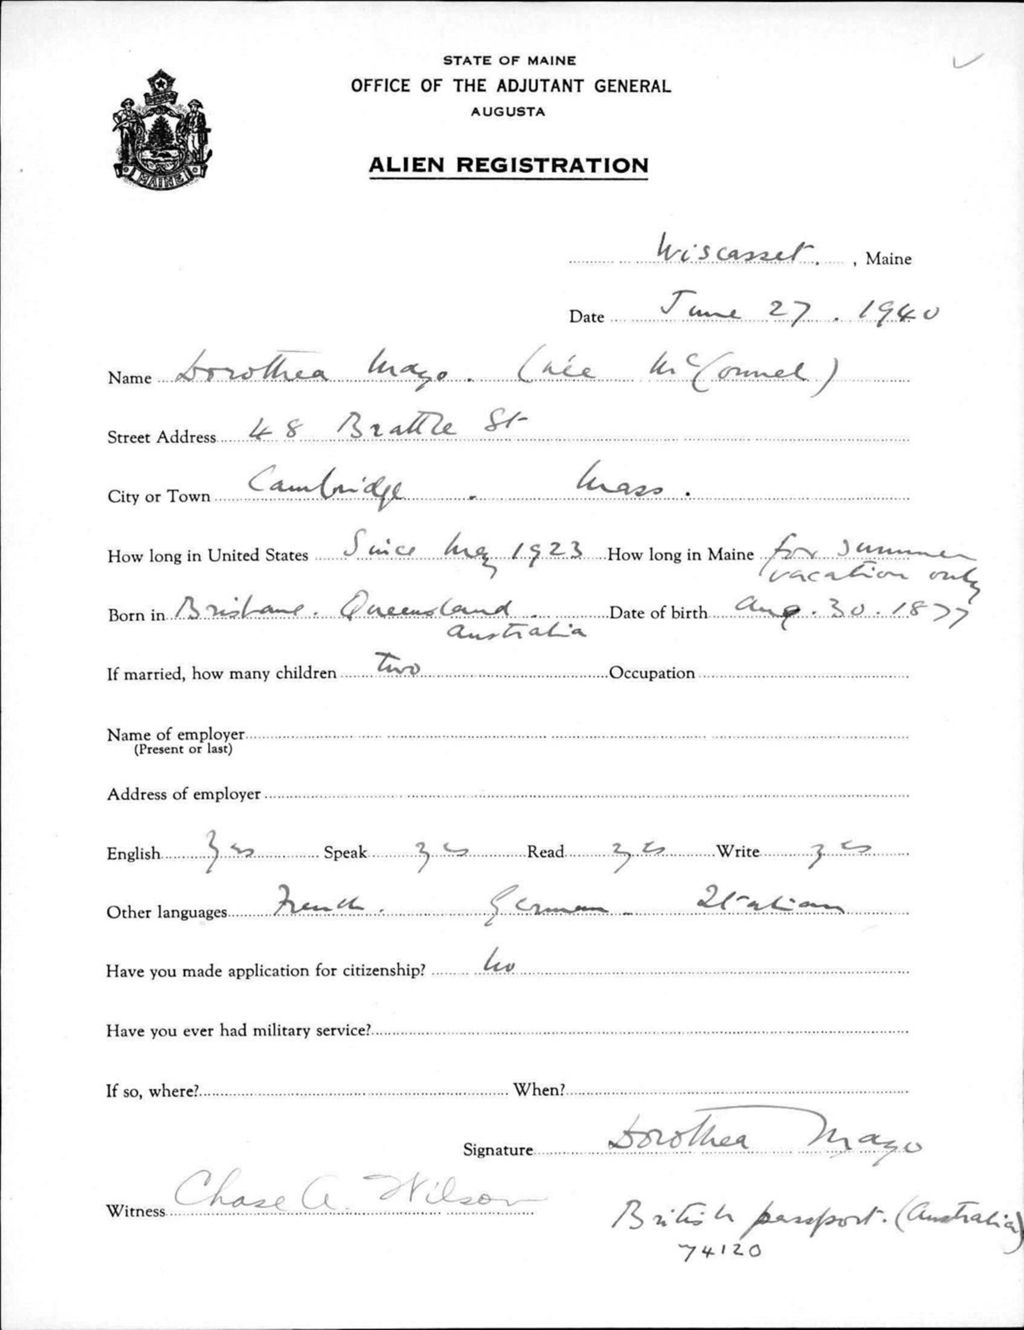 STATE OF MAINE
OFFICE OF THE ADJUTANT GENERAL
AUGUSTA
ALIEN REGISTRATION
MAINE
Wiscasset. , Maine
Date June 27. 1940
Name Dorothea Mayo. (née McConnel)
Street Address 48 Brattle St
City or Town Cambridge. Mass.
How long in United States Since May 1923 How long in Maine for summer
vacation only
Born in Brisbane. Queensland. Date of birth Aug. 30. 1877
Australia
If married, how many children two Occupation
Name of employer
(Present or last)
Address of employer
English Yes Speak yes Read yes Write yes
Other languages French. German. Italian
Have you made application for citizenship? No
Have you ever had military service?
If so, where? When?
Signature Dorothea Mayo
Witness Chase A. Wilson
British passport. (Australia)
74120